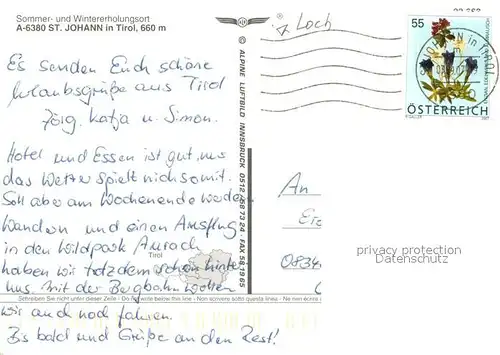 Sommer- und Wintererholungsort
A-6380 ST. JOHANN in Tirol, 660 m
Loch
55
ÖSTERREICH
© ALPINE LUFTBILD INNSBRUCK
Es senden Euch schöne
Urlaubsgrüße aus Tirol
Jörg, Katja u. Simon.
Hotel und Essen ist gut, nur
das Wetter spielt nicht so mit.
Soll aber am Wochenende werden
Wandern und einen Ausflug
in den Wildpark Aurach
haben wir trotzdem schon hinter
uns. Mit der Bergbahn wollen
wir auch noch fahren.
Bis bald und Grüße an den Rest!
Tirol
Schreiben Sie nicht unter dieser Zeile - Do not write below this line - Non scrivere sotto questa linea
An
privacy protection
Datenschutz